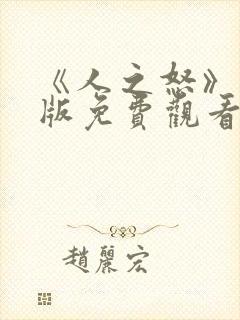 《人之怒》
版免費觀看
趙麗宏